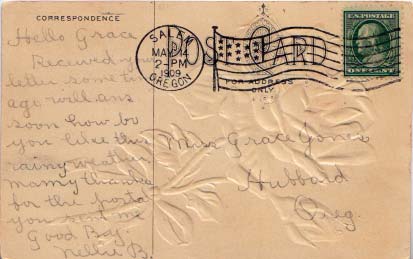 CORRESPONDENCE
Hello Grace
Received your
letter some time
ago will ans
soon how do
you like this
rainy weather
many thanks
for the postal
you sent me
Good By.
Nellie B.
SALEM
MAR
2-PM
1909
OREGON
CARD
FOR ADDRESS
ONLY
U.S. POSTAGE
ONE CENT
Miss Grace Jones
Hubbard
Oreg.